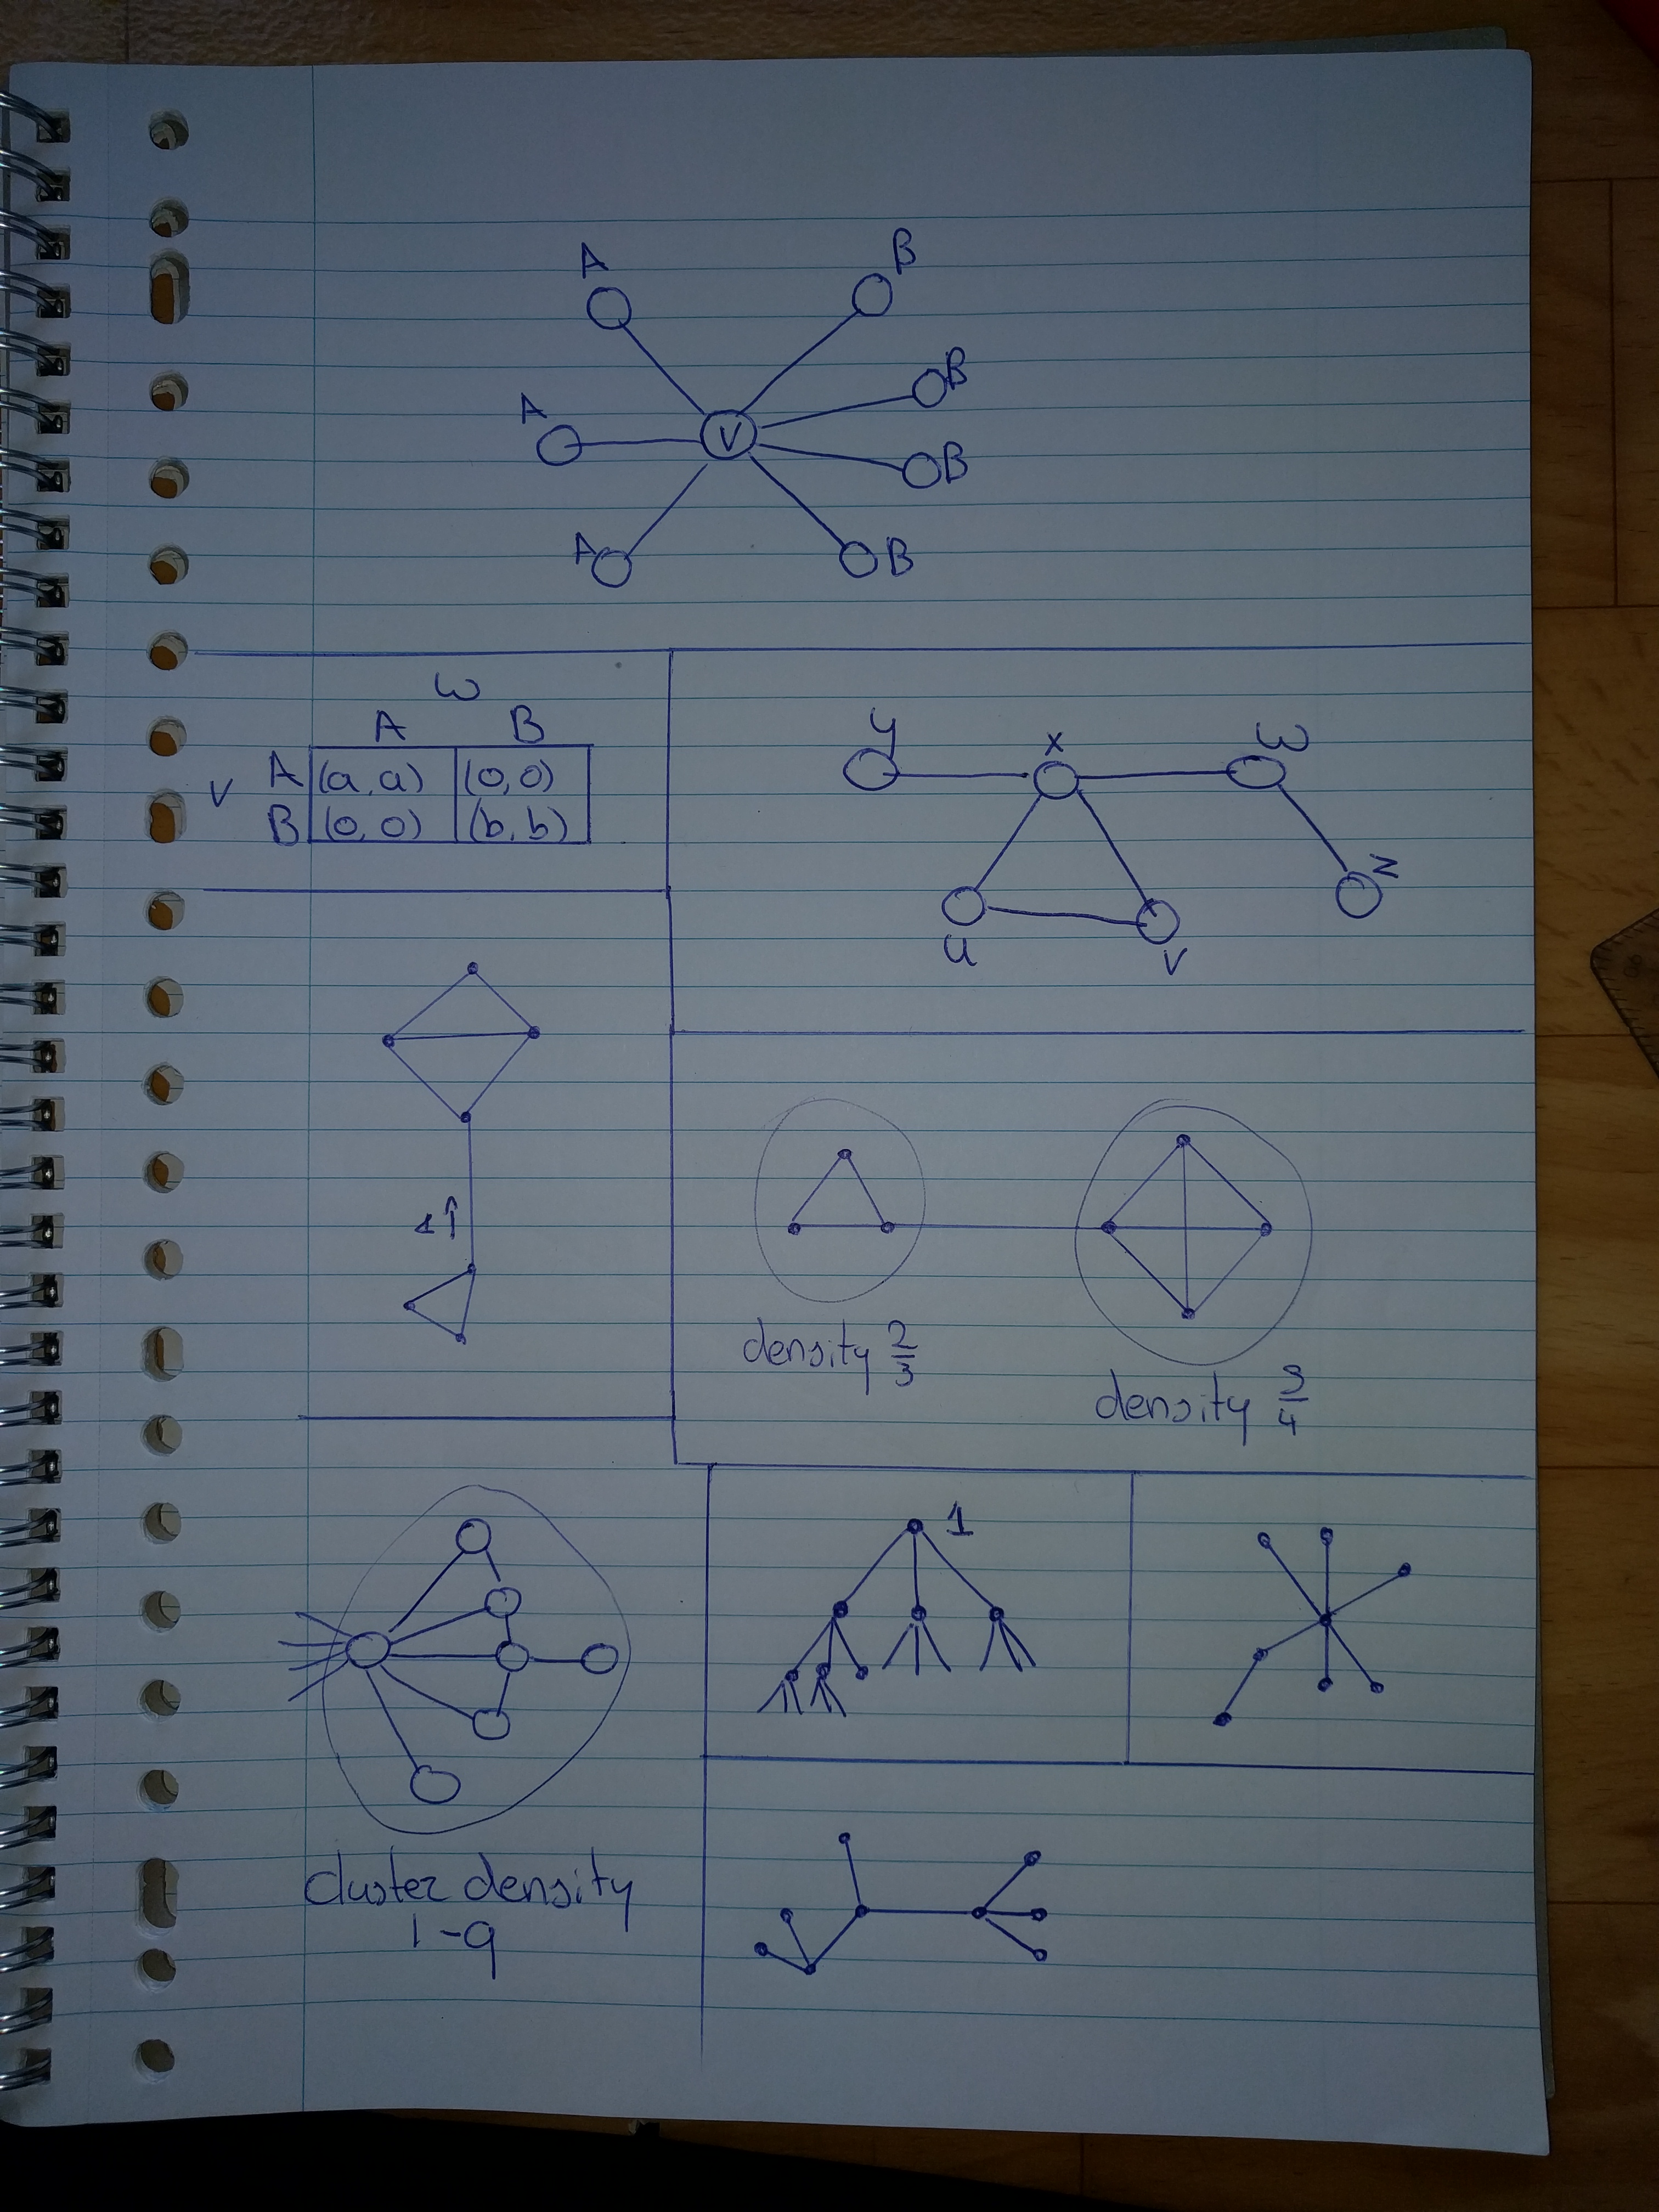 A B
B
A V
B
A B
ω
A B
V A (a,a) (0,0)
B (0,0) (b,b)
y x ω
z
u v
density 2/3
density 3/4
1
cluster density
1-q